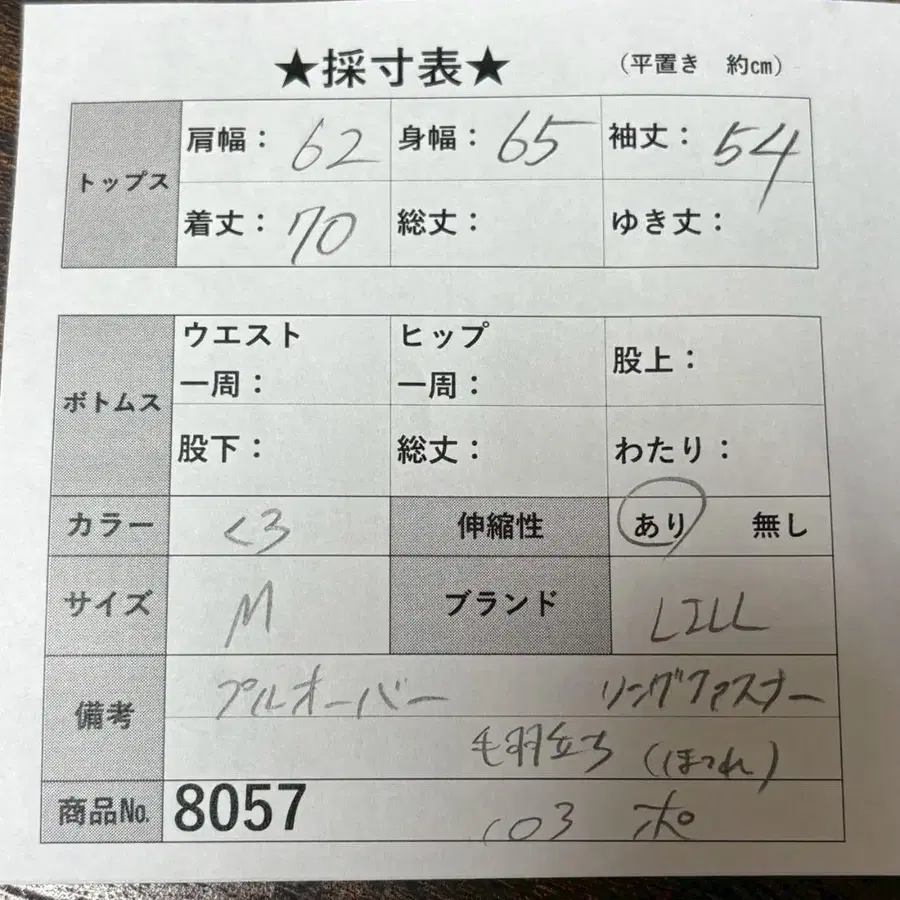 ★採寸表★ (平置き 約㎝)
トップス
肩幅： 62 身幅： 65 袖丈： 54
着丈： 70 総丈： ゆき丈：
ボトムス
ウエスト一周： ヒップ一周： 股上：
股下： 総丈： わたり：
カラー くろ 伸縮性 あり 無し
サイズ M ブランド LILL
備考 プルオーバー リングファスナー
毛羽立ち (ほつれ)
商品No. 8057 103 ポ